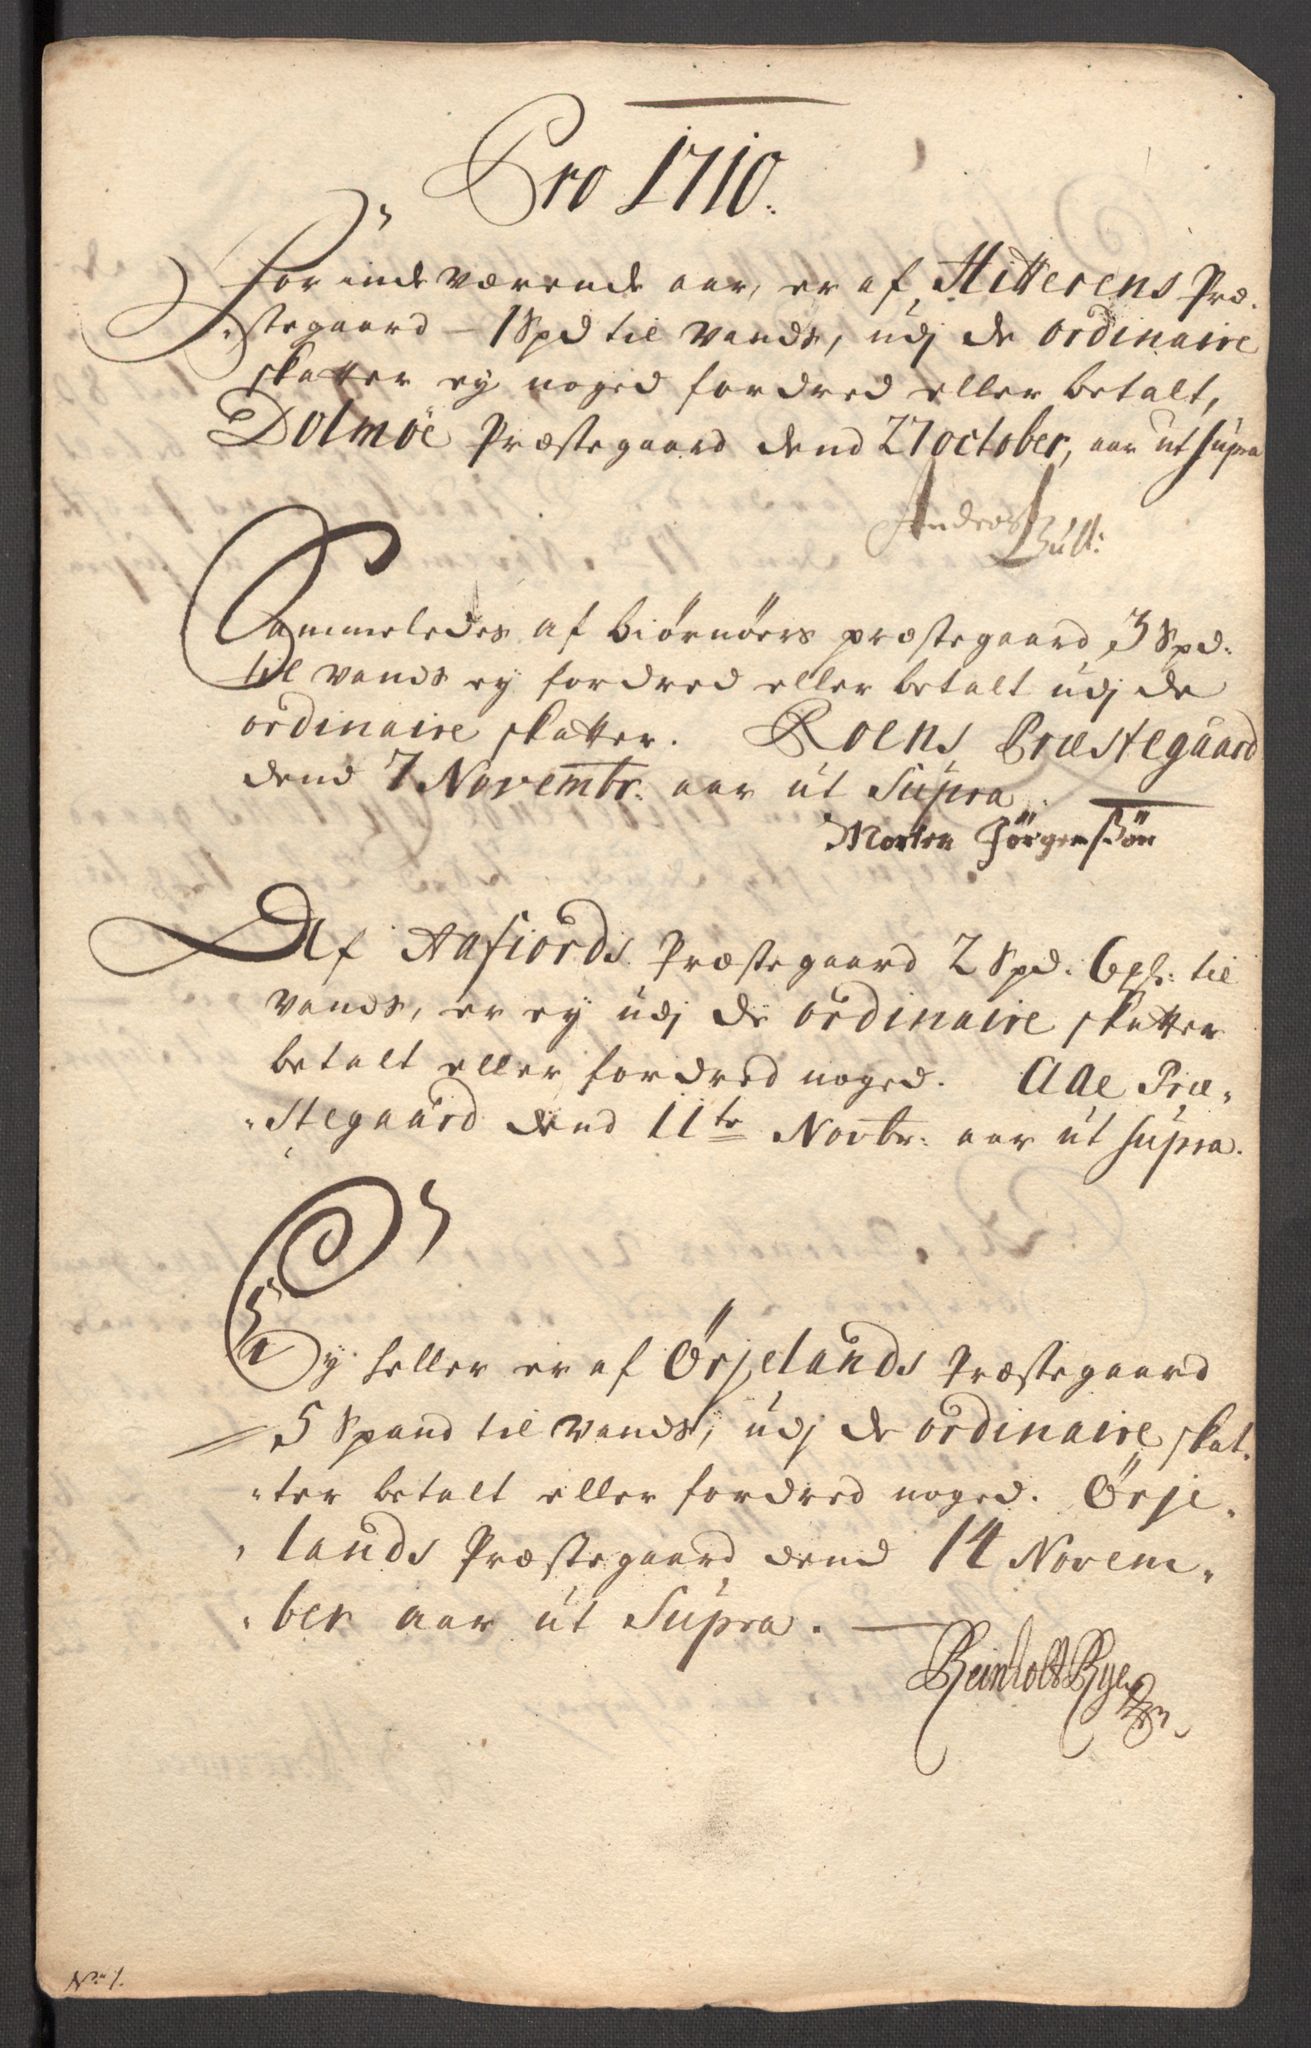 Pro 1710.
For inde værende aar, er af Hitterens Præ-
stegaard - 1 Spd til vands, udj de ordinaire
skatter ey noged fordred eller betalt,
Dolmøe Præstegaard dend 27 october, aar ut supra
Andreas Bull:
Sammeledes af Biørnøers præstegaard 3 Spd:
til vands ey fordred eller betalt udj de
ordinaire skatter. Roens Præstegaard
dend 7 Novembr. aar ut Supra.
Morten Jörgensßön
Af Aafiords Præstegaard 2 Spd. 6 på: til
vands, er ey udj de ordinaire skatter
betalt eller fordred noged. Aae Præ-
stegaard dend 11te Novbr: aar ut supra.
Ey heller er af Ørjelands Præstegaard
5 Spand til vands, udj de ordinaire skat-
ter betalt eller fordred noged. Ørje-
lands Præstegaard dend 14 Novem-
ber aar ut Supra.
Reinholt Rye
No 1.